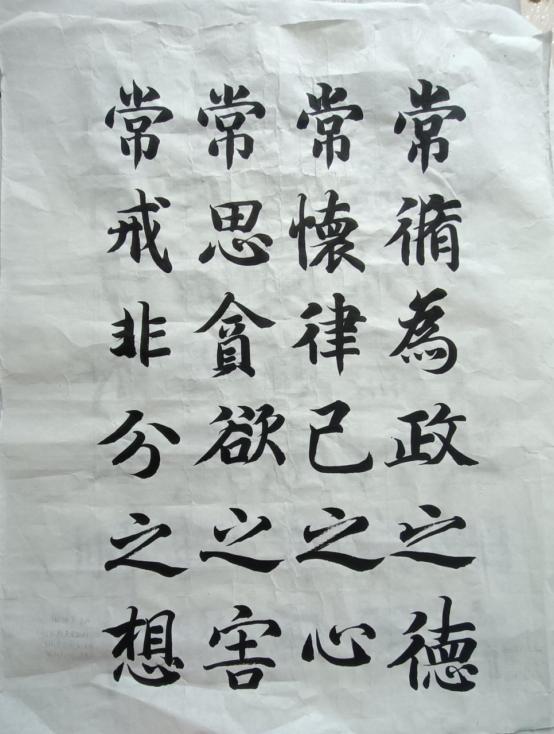 常脩為政之德
常懷律己之心
常思貪欲之害
常戒非分之想